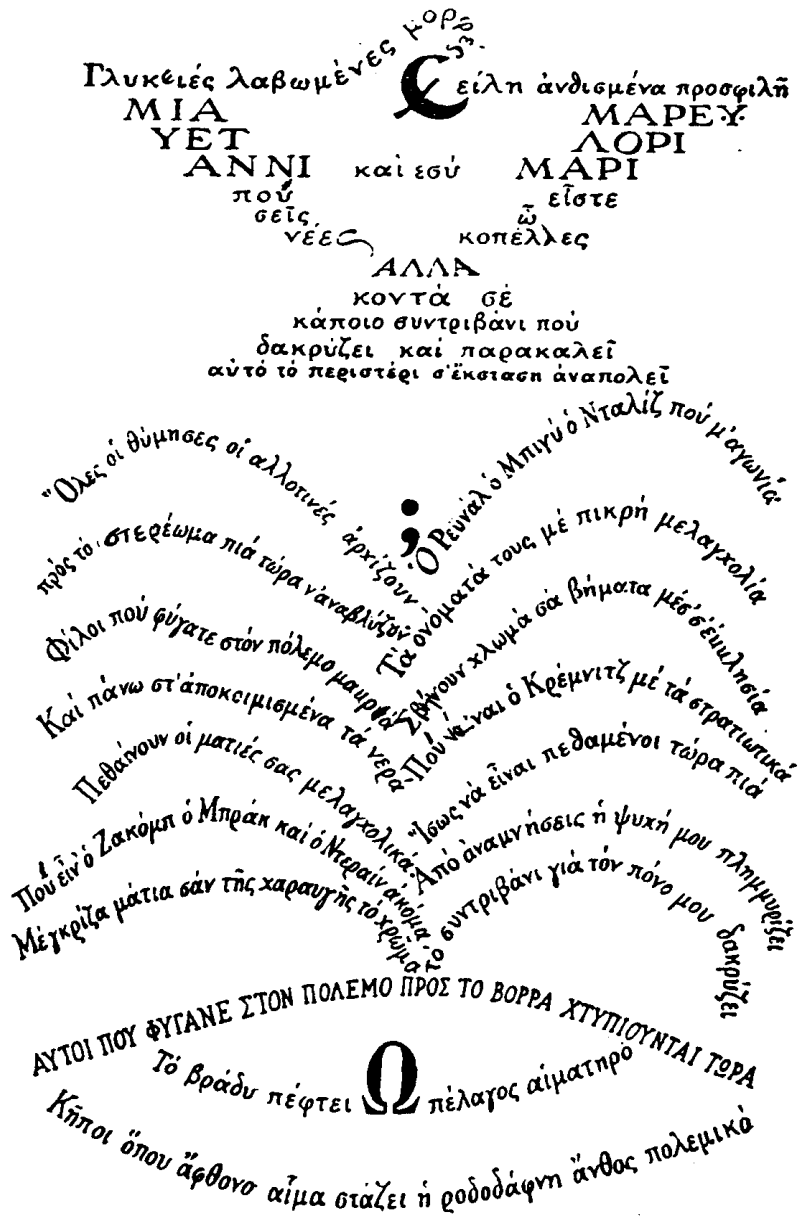 Γλυκειές λαβωμένες μορφές
Χείλη ἀνθισμένα προσφιλῆ
ΜΙΑ ΜΑΡΕΥ·
ΥΕΤ ΛΟΡΙ
ΑΝΝΙ καὶ εσύ ΜΑΡΙ
πού εἶστε
σεῖς ὦ
νέες κοπέλλες
ΑΛΛΑ
κοντά σέ
κάποιο συντριβάνι πού
δακρύζει καί παρακαλεῖ
αὐτό τό περιστέρι σ'ἔκσταση ἀναπολεῖ
Ὅλες οἱ θύμησες οἱ αλλοτινές ἀρχίζουν
πρός τό στερέωμα πιά τώρα ν'αναβλύζουν
Φίλοι πού φύγατε στόν πόλεμο μακρυά
Καί πάνω στ'ἀποκοιμισμένα τά νερα
Πεθαίνουν οἱ ματιές σας μελαγχολικά
Πού εἶν'ὁ Ζακόμπ ὁ Μπράκ καί ὁ Ντεραίν ἀκόμα
Μέ γκρίζα μάτια σάν τῆς χαραυγῆς τό χρῶμα
;
Ὁ Ρεϋνάλ ὁ Μπιγύ ὁ Νταλίζ πού μ'αγωνία
Τά ονόματά τους μέ πικρή μελαγχολία
Σβήνουν χλωμά σά βήματα μέσ'σ'ἐκκλησία
Πού νά εἶναι ὁ Κρέμνιτζ μέ τά στρατιωτικά
Ἴσως νά εἶναι πεθαμένοι τώρα πιά
Ἀπό ἀναμνήσεις ἡ ψυχή μου πλημμυρίζει
τό συντριβάνι γιά τόν πόνο μου δακρύζει
ΑΥΤΟΙ ΠΟΥ ΦΥΓΑΝΕ ΣΤΟΝ ΠΟΛΕΜΟ ΠΡΟΣ ΤΟ ΒΟΡΡΑ ΧΤΥΠΙΟΥΝΤΑΙ ΤΩΡΑ
Τό βράδυ πέφτει Ω πέλαγος αἱματηρό
Κῆποι ὅπου ἄφθονο αἷμα στάζει ἡ ροδοδάφνη ἄνθος πολεμικό